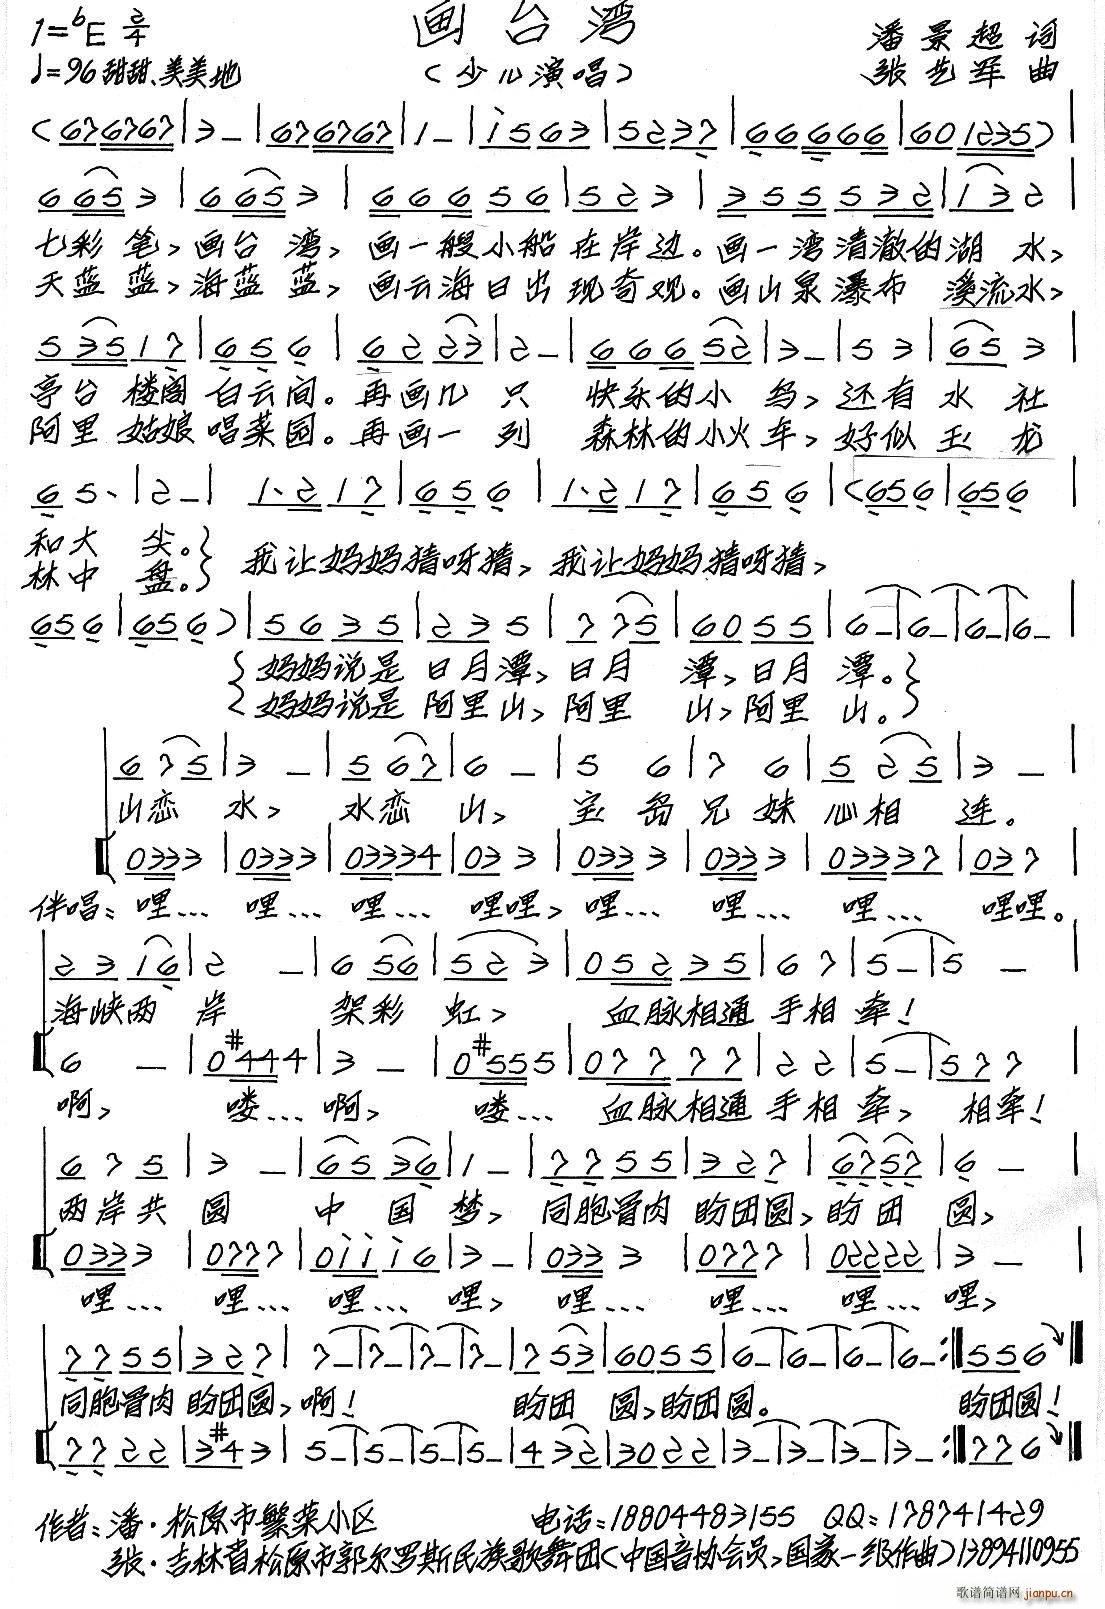 画台湾
1=♭E 2/4
♩=96 甜甜、美美地
(少儿演唱)
潘景超 词
张艺军 曲
(676767|3_|676767|1_|i563|5237|66666|601235)|
6653|6653|66656|523|3555332|132|
七彩笔,画台湾,画一艘小船在岸边。画一湾清澈的湖水,
天蓝蓝,海蓝蓝,画云海日出现奇观。画山泉瀑布 溪流水,
53517|656|6223|2_|66652|3_|53|653|
亭台楼阁白云间。再画几只 快乐的小鸟,还有水社
阿里姑娘唱菜园。再画一列 森林的小火车,好似玉龙
65·|2_|1·217|656|1·217|656|(656|656|
和大尖。 我让妈妈猜呀猜,我让妈妈猜呀猜,
林中盘。
656|656)|5635|235|775|6055|6_|6_|6_|6_|
妈妈说是日月潭,日月潭,日月潭。
妈妈说是阿里山,阿里山,阿里山。
675|3_|567|6_|56|76|525|3_|
山恋水,水恋山,宝岛兄妹心相连。
0333|0333|03334|033|0333|0333|03337|037|
伴唱:哩… 哩… 哩… 哩哩,哩… 哩… 哩… 哩哩。
2316|2_|656|523|05235|67|5_|5_|
海峡两岸 架彩虹, 血脉相通手相牵!
6_|0#444|3_|0#555|07777|22|5_|577|
啊, 喽…啊, 喽… 血脉相通手相牵, 相牵!
675|3_|6536|1_|7755|327|6757|6_|
两岸共圆 中国梦,同胞骨肉盼团圆,盼团圆,
0333|0777|0iii6|3_|0333|0777|02222|3_|
哩… 哩… 哩… 哩,哩… 哩… 哩… 哩,
7755|327|7_|7_|7_|7_|753|6055|6_|6_|6_|6_:‖556‖
同胞骨肉盼团圆,啊! 盼团圆,盼团圆。 盼团圆!
7722|3#43|5_|5_|5_|5_|432|3022|3_|3_|3_|3_:‖776‖
作者:潘·松原市繁荣小区 电话:18804483155 QQ:178741429
张·吉林省松原市郭尔罗斯民族歌舞团(中国音协会员,国家一级作曲)13894110955
歌谱简谱网
jianpu.cn